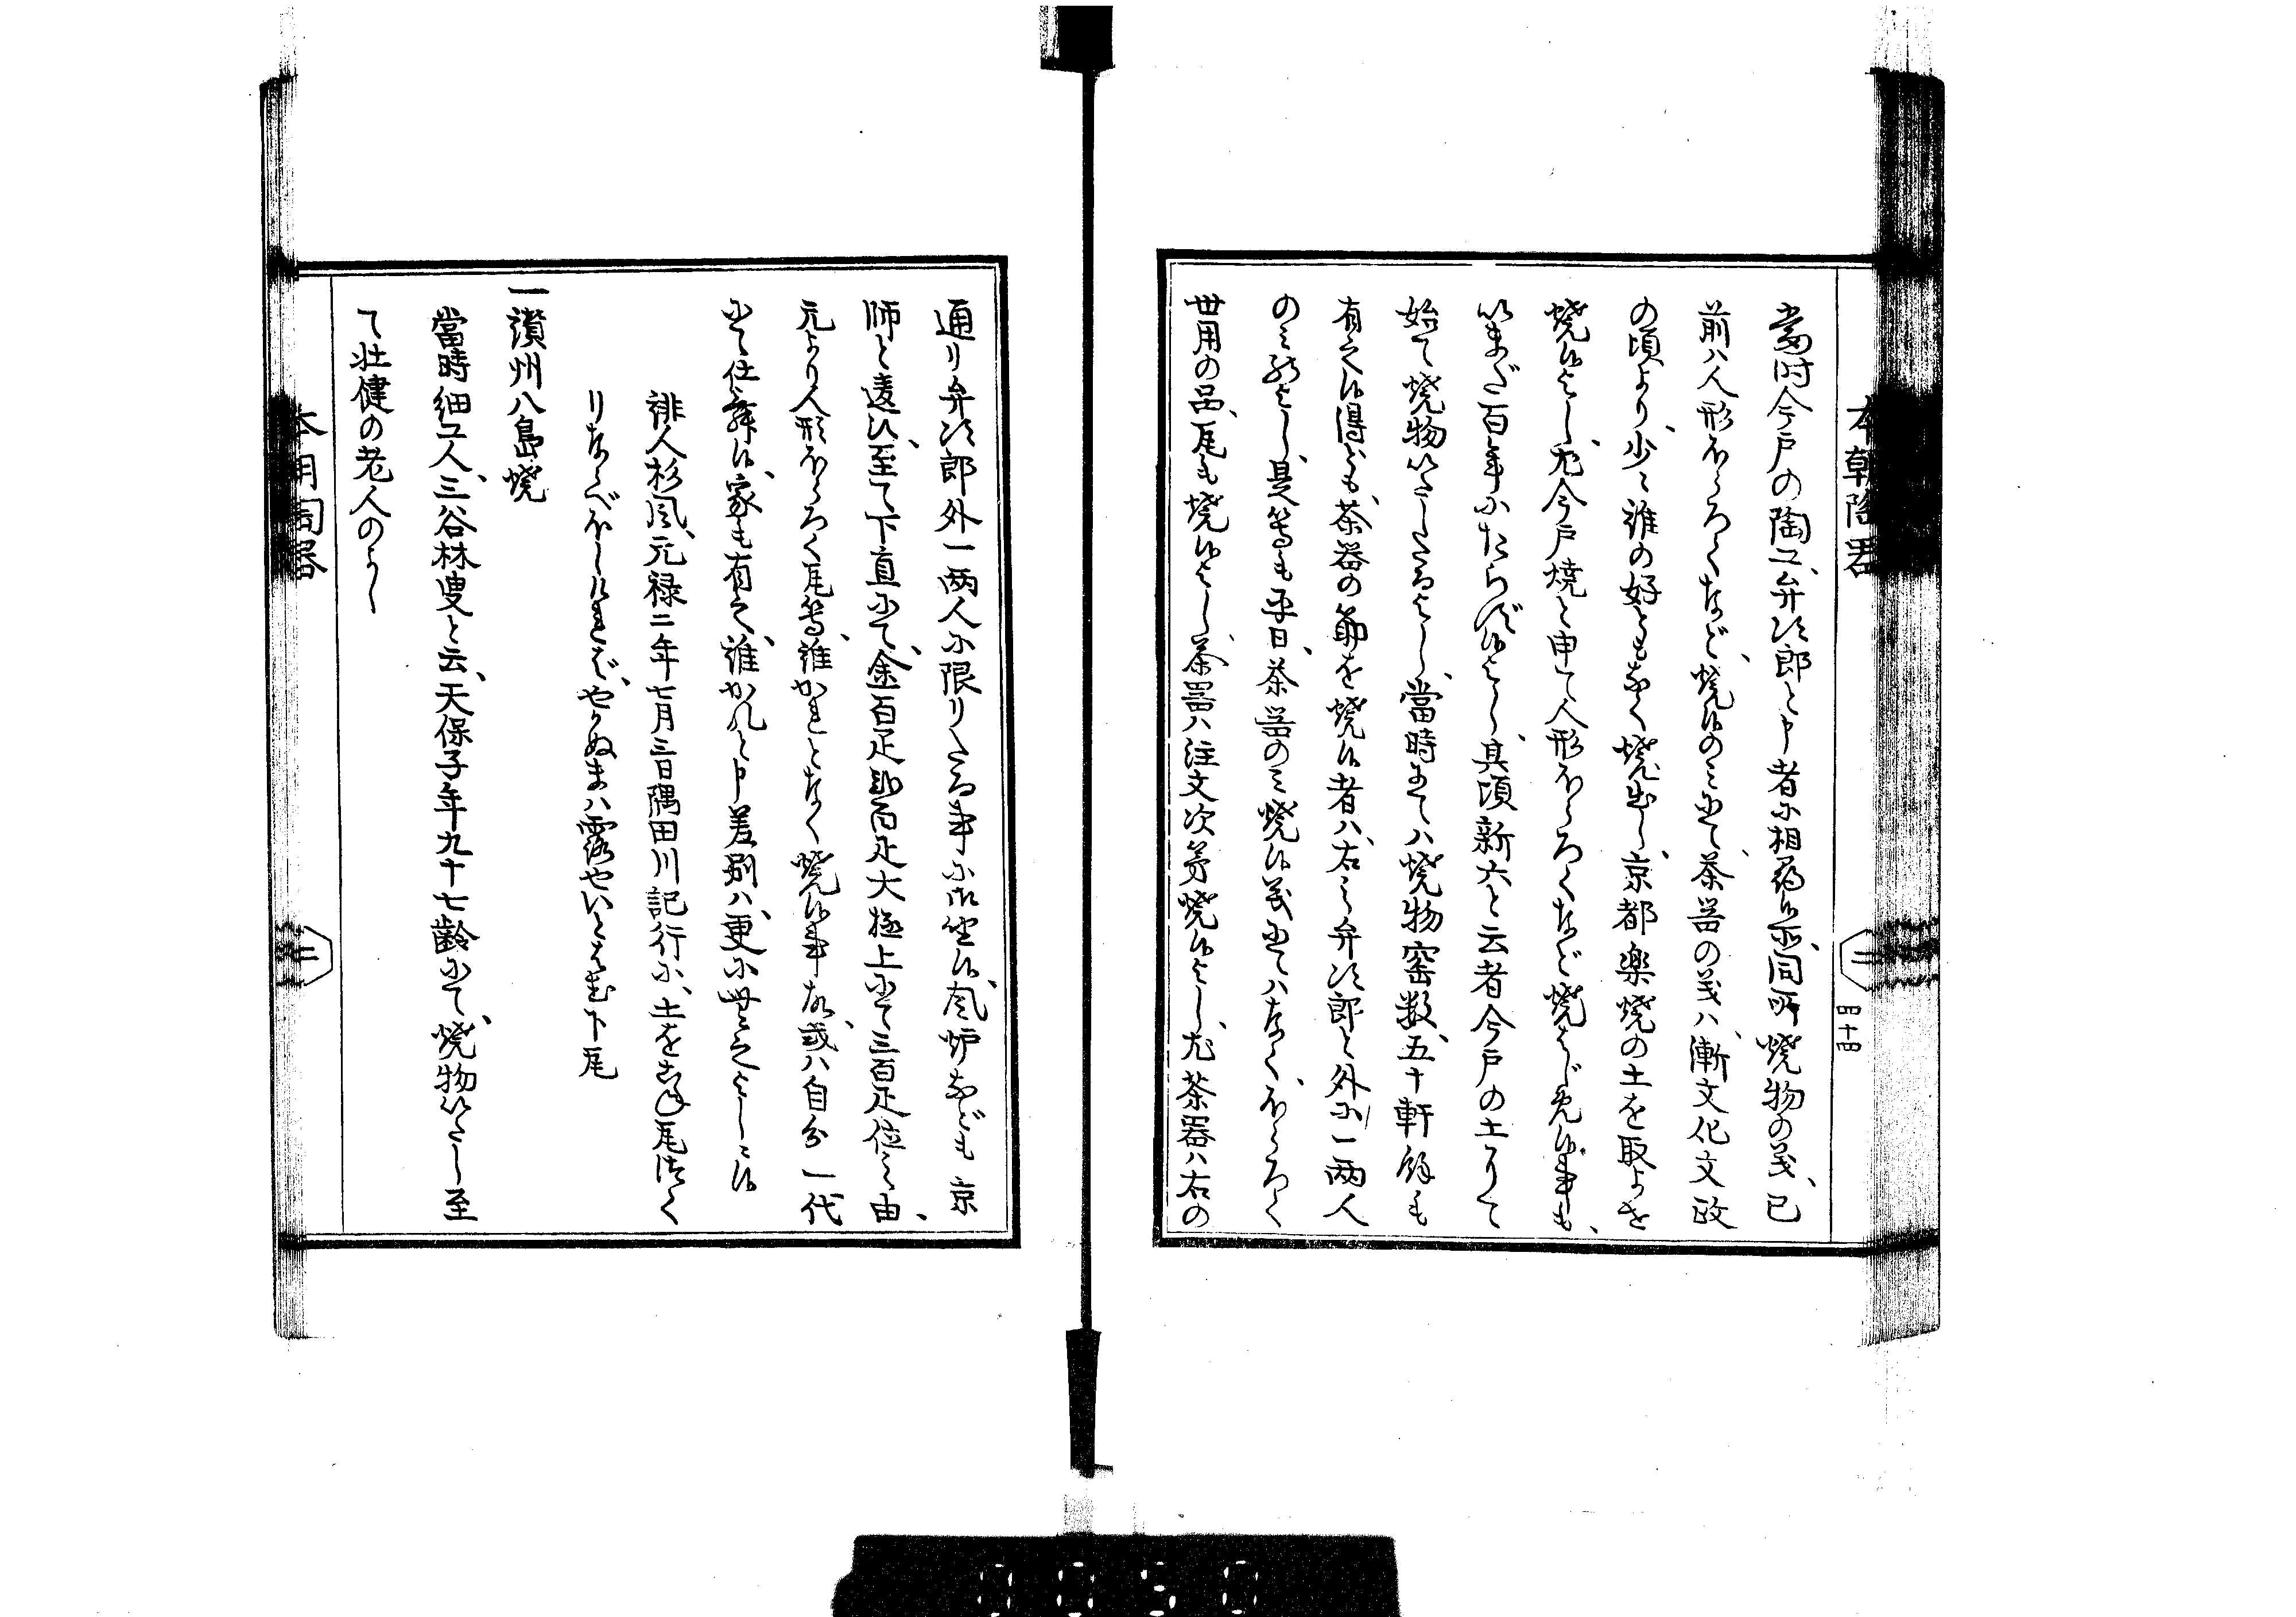 本朝陶器
二
四十四
當時今戸の陶工弁次郎と申者に相尋候処、同所焼物の義、已
前ハ人形ほうろくなど、焼候のミにて、茶器の義ハ、漸文化文政
の頃より、少々誰の好ともなく焼出し、京都楽焼の土を取よせ
焼候よし、尤今戸焼と申て人形ほうろくなど焼はじめ候事も、
いまだ百年にたらず候よし、其頃新六と云者今戸の土にて
始て焼物いたしたるよし、當時にてハ焼物窯数、五十軒餘も
有之候得ども、茶器の節を焼候者ハ、右之弁次郎と外に一両人
のミのよし、是等も平日、茶器のミ焼候義にてハなく、ほうろく
世用の品、瓦も焼候よし、茶器ハ注文次第焼候よし、尤茶器ハ右の
通り弁次郎外一両人に限りたる事に御坐候、風炉なども京
師と違ひ、至て下直にて、金百疋弐百疋大極上にて三百疋位之由、
元より人形ほうろく瓦等、誰かれとなく焼候事故、或ハ自分一代
にて仕舞候、家も有之、誰かれと申差別ハ、更に無之よしに候
俳人杉風、元禄二年七月三日隅田川記行に、土をこね瓦つく
りならべほしければ、やかぬまハ露やいとはむ下瓦
一讃州八島焼
當時細工人、三谷林叟と云、天保子年九十七齢にて、焼物いたし至
て壮健の老人のよし
二